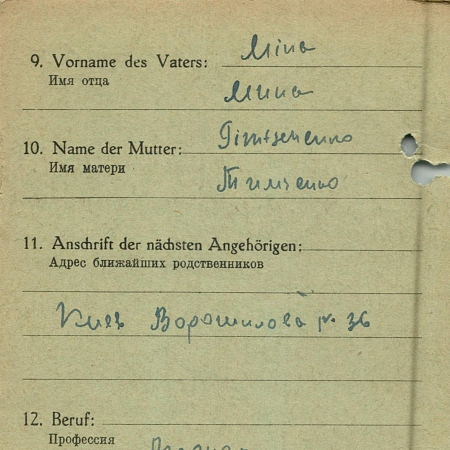 9. Vorname des Vaters: Mina
Имя отца
Мина
10. Name der Mutter: Timtschenko
Имя матери
Тимченко
11. Anschrift der nächsten Angehörigen:
Адрес ближайших родственников
Киев Ворошилова № 36
12. Beruf:
Профессия